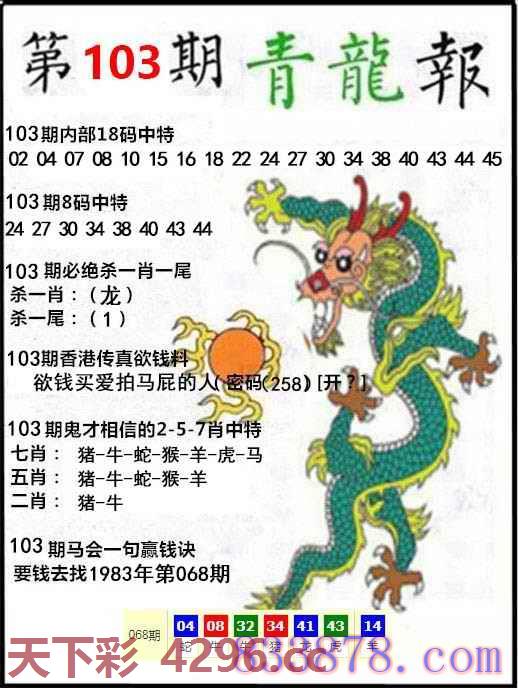 第103期 青龍報
103期内部18码中特
02 04 07 08 10 15 16 18 22 24 27 30 34 38 40 43 44 45
103期8码中特
24 27 30 34 38 40 43 44
103期必绝杀一肖一尾
杀一肖：（龙）
杀一尾：（1）
103期香港传真欲钱料
欲钱买爱拍马屁的人(密码(258)[开?]
103期鬼才相信的2-5-7肖中特
七肖： 猪-牛-蛇-猴-羊-虎-马
五肖： 猪-牛-蛇-猴-羊
二肖： 猪-牛
103期马会一句赢钱诀
要钱去找1983年第068期
068期 04 08 32 34 41 43 14
蛇 牛 牛 猪 龙 虎 羊
天下彩 4296.cc